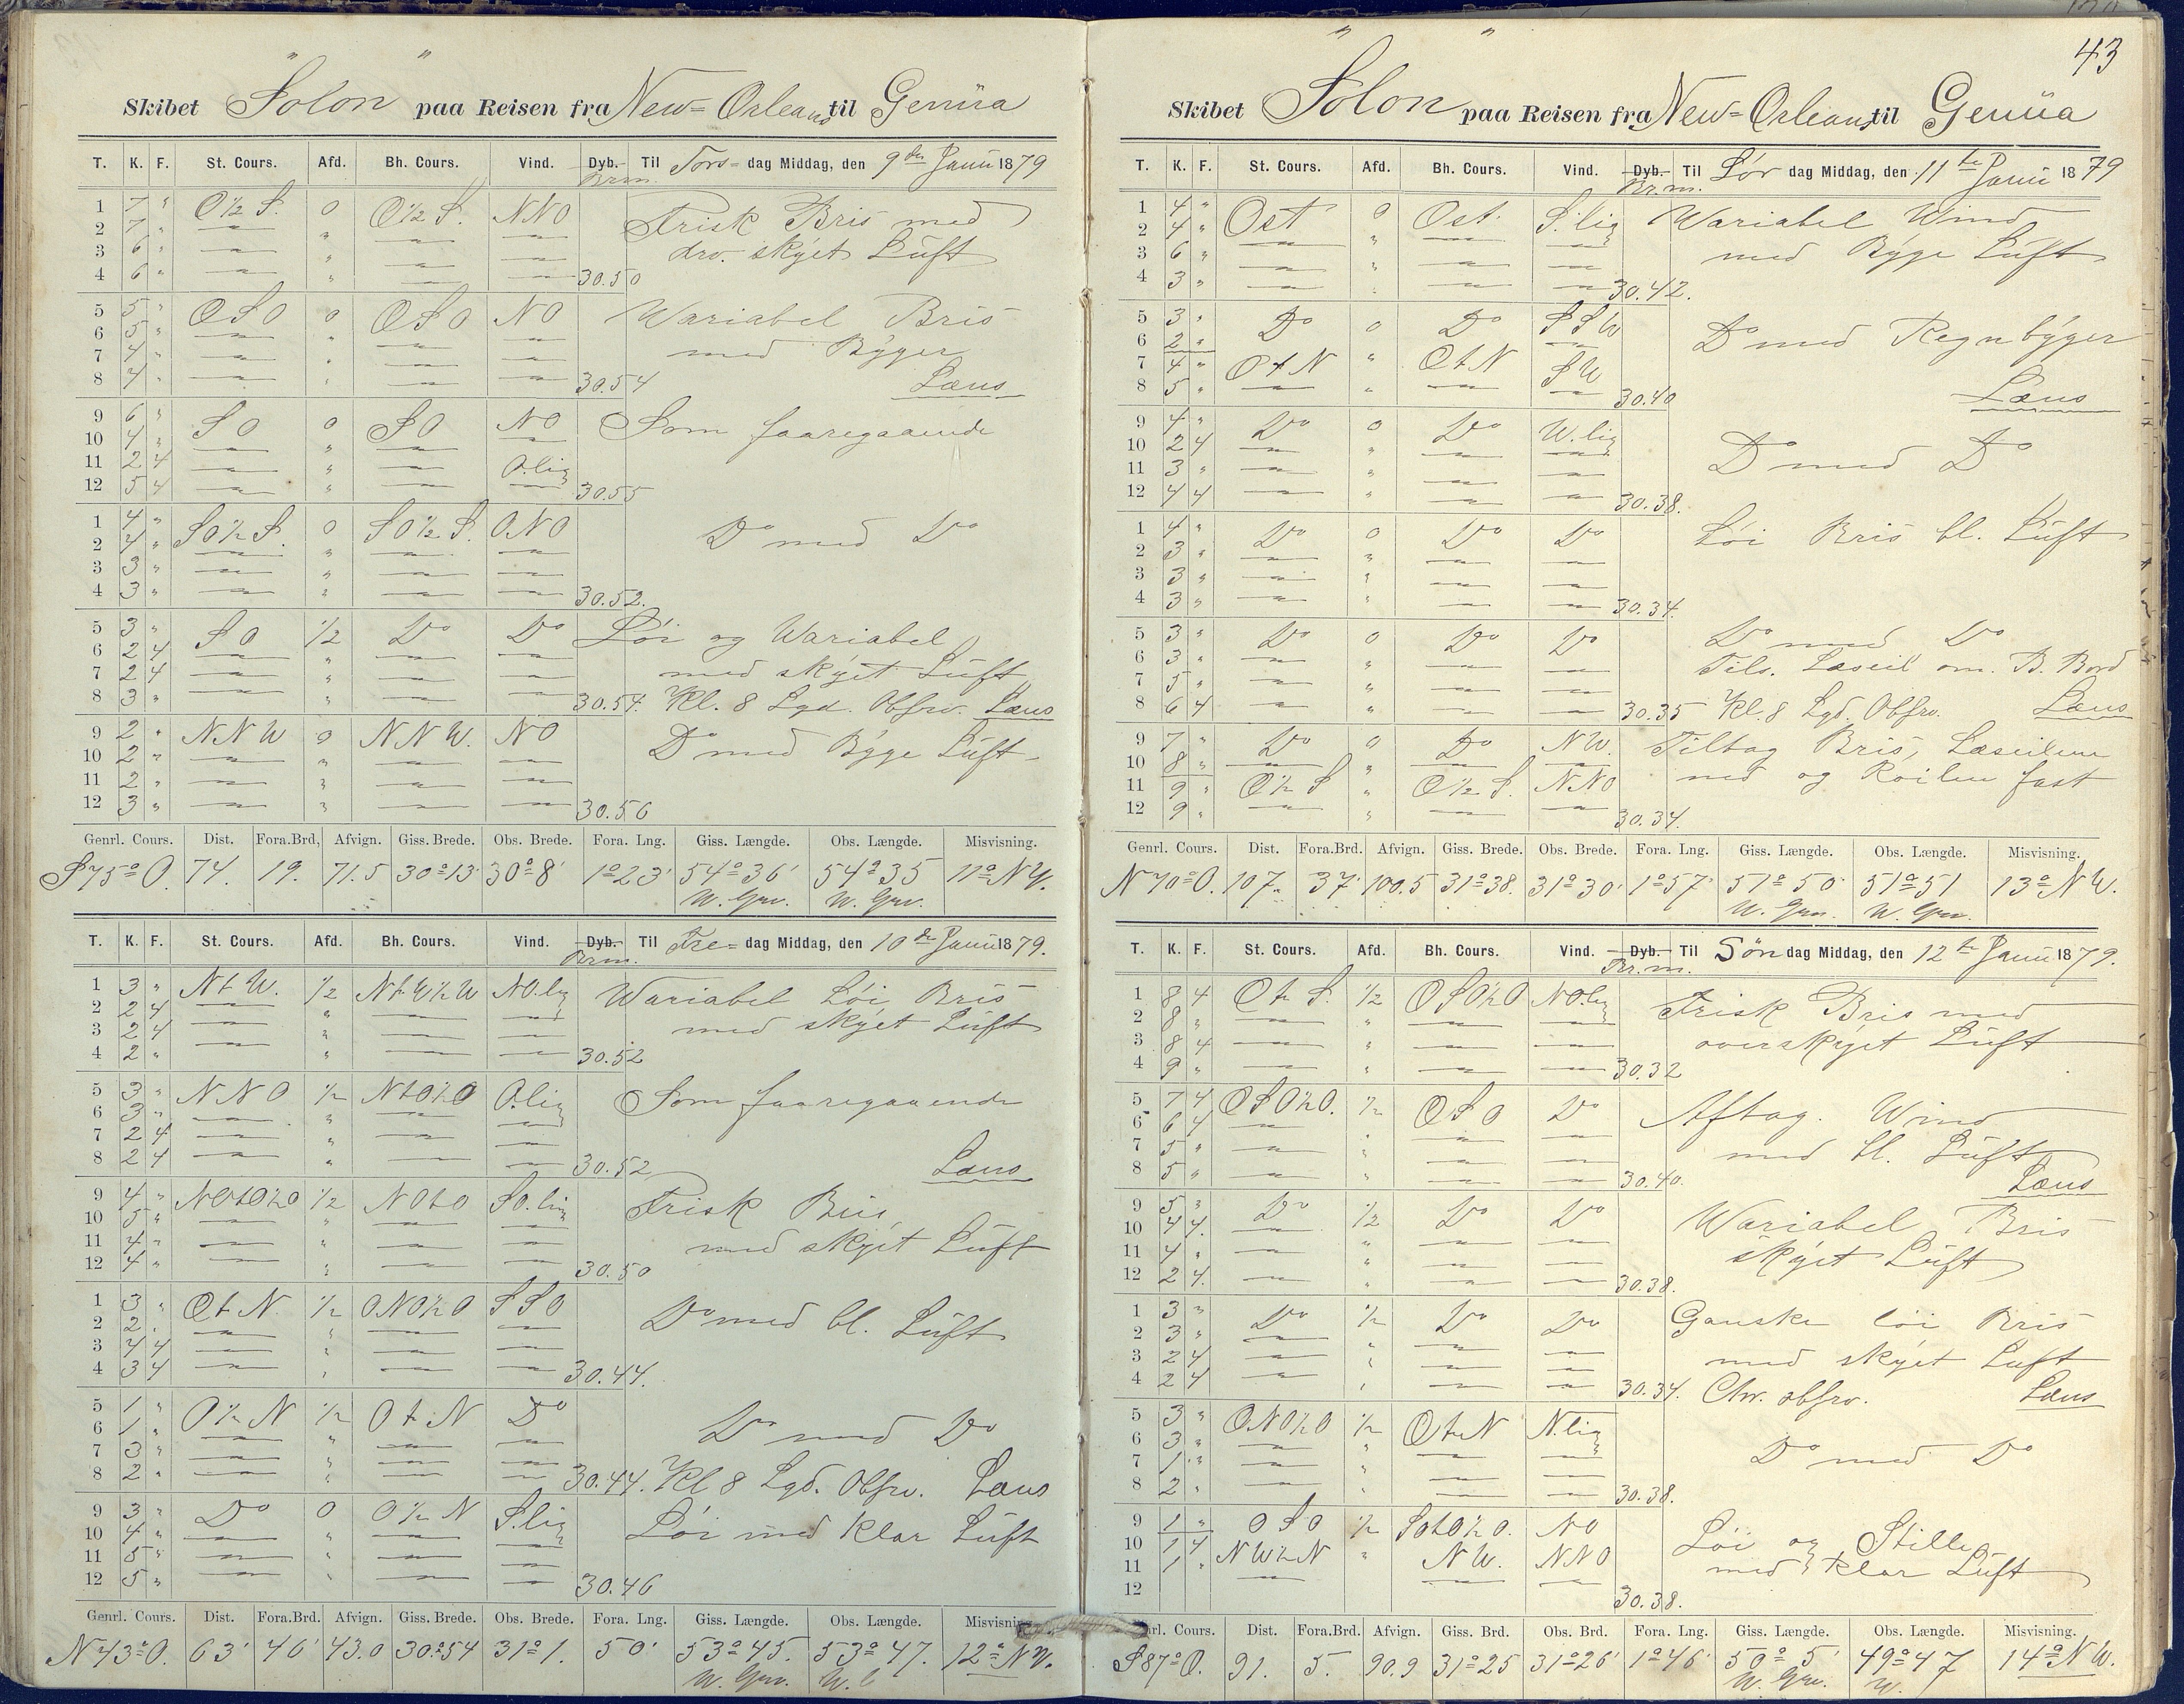 " "
Skibet Solon paa Reisen fra New=Orleans til Genüa
T. K. F. St. Cours. Afd. Bh. Cours. Vind. Dyb. Til Tors= dag Middag, den 9de Janü 1879
Brm.
1 7 " O ½ S. 0 O ½ S. NNO Frisk Bris med
2 7 " — " — —
3 6 " — " — — drv. skÿet Lüft
4 6 " — " — — 30.50
5 5 " OSO 0 OSO NO Wariabel Bris
6 5 " — " — —
7 4 " — " — — med Bÿger
8 4 " — " — — 30.54 Læns
9 6 " SO 0 SO NO Som foaregaaende
10 4 " — " — —
11 2 4 — " — O.lig
12 5 4 — " — — 30.55
1 4 " SO ½ S. 0 SO ½ S. ONO Do med Do
2 4 " — " — —
3 3 " — " — —
4 3 " — " — — 30.52.
5 3 " SO ½ Do Do Löi og Wariabel
6 2 4 — " — —
7 2 4 — " — — med skÿet Lüft
8 3 " — " — — 30.54. Kl. 8 Lgd. Obsrv. Læns
9 2 " NNW 0 NNW. NO Do med Bÿge Lüft
10 2 " — " — —
11 2 " — " — —
12 3 " — " — — 30.56
Genrl. Cours. Dist. Fora.Brd, Afvign. Giss. Brede. Obs. Brede. Fora. Lng. Giss. Længde. Obs. Længde. Misvisning.
S 75° O. 74. 19. 71.5 30°13' 30°8' 1°23' 54°36' 54°35 11° NW.
W. Grv. W. Grv.
T. K. F. St. Cours. Afd. Bh. Cours. Vind. Dyb. Til Fre= dag Middag, den 10de Janü 1879.
Brm.
1 3 " NtW. ½ NtW½W NO.lig Wariabel Löi Bris
2 2 4 — " — —
3 2 4 — " — — med skÿet Lüft
4 2 " — " — — 30.52
5 3 " NNO ½ NtO½O O.lig Som foaregaaende
6 3 " — " — —
7 2 4 — " — —
8 2 4 — " — — 30.52 Læns
9 4 " NOtO½O ½ NOtO SO.lig Frisk Bris
10 5 " — " — —
11 4 " — " — — med skÿet Lüft
12 4 " — " — — 30.50
1 3 " OtN. ½ ONO½O SSO Do med bl. Lüft
2 2 " — " — —
3 4 4 — " — —
4 3 4 — " — — 30.44.
5 1 " O½N ½ OtN Do Do med Do
6 1 " — " — —
7 3 " — " — —
8 2 " — " — — 30.44. Kl 8 Lgd. Obsrv. Læns
9 3 " Do 0 O½N S.lig Löi med Klar Lüft
10 4 " — " — —
11 5 " — " — —
12 5 " — " — — 30.46
Genrl. Cours. Dist. Fora.Brd. Afvign. Giss. Brede. Obs. Brede. Fora. Lng. Giss. Længde. Obs. Længde. Misvisning
N 43° O. 63' 46' 43.0 30°54 31°1. 50' 53°45. 53°47. 12° NW.
W. Grv. W.
43
" "
Skibet Solon paa Reisen fra New=Orleans til Genüa
T. K. F. St. Cours. Afd. Bh. Cours. Vind. Dyb. Til Lör dag Middag, den 11te Janü 1879
Br.m.
1 4 " Ost 0 Ost. S.lig Wariabel Wind
2 4 " — " — —
3 6 " — " — — med Bÿge Lüft
4 3 " — " — — 30.42.
5 3 " Do 0 Do SSW Do med Regnbÿger
6 2 " — —
7 4 " OtN " OtN SW
8 5 " — " — — 30.40 Læns
9 4 " Do 0 Do W.lig
10 2 4 — " — — Do med Do
11 3 " — " — —
12 4 4 — " — — 30.38.
1 4 " Do 0 Do Do Löi Bris bl. Lüft
2 3 " — " — —
3 3 " — " — —
4 3 " — " — — 30.34.
5 3 " Do 0 Do Do Do med Do
6 3 " — " — — Tils. Læseil om. B. Bord
7 5 " — " — —
8 6 4 — " — — 30.35 Kl. 8 Lgd. Obsrv. Læns
9 7 " Do 0 Do NW. Tiltag Bris, Læseilene
10 8 " — " — —
11 9 " O½S " O½S. NNO ned og Röilen fast
12 9 " — " — — 30.34.
Genrl. Cours. Dist. Fora.Brd. Afvign. Giss. Brede. Obs. Brede. Fora. Lng. Giss. Længde. Obs. Længde. Misvisning.
N 70° O. 107. 37' 100.5 31°38. 31°30' 1°57' 51°50' 51°51 13° NW.
W. Grv. W. Grv.
T. K. F. St. Cours. Afd. Bh. Cours. Vind. Dyb. Til Sön dag Middag, den 12te Janü 1879.
Br.m.
1 8 4 OtS. ½ OSO½O NO.lig Frisk Bris med
2 8 " — " — —
3 8 4 — " — — overskÿet Lüft
4 9 " — " — — 30.32
5 7 4 OSO½O. ½ OSO Do Aftag. Wind
6 6 4 — " — —
7 5 " — " — — med bl. Lüft
8 5 " — " — — 30.40. Læns
9 5 " Do ½ Do Do Wariabel Bris
10 4 4. — " — —
11 4 " — " — — skÿet Lüft
12 2 4. — " — — 30.38.
1 3 " Do ½ Do Do Ganske löi Bris
2 3 " — " — —
3 2 4 — " — — med skÿet Lüft
4 2 4 — " — — 30.34. Chr. obsrv. Læns
5 3 " ONO½O ½ OtN N.lig
6 3 " — " — — Do med Do
7 1 " — " — —
8 2 " — " — — 30.38.
9 1 " OSO ½ SOtO½O. NO Löi og Stille
10 1 4
11 1 " NW½N " NW. NNO med Klar Lüft
12 — — — 30.38.
rl. Cours. Dist. Fora.Brd. Afvign. Giss. Brd. Obs. Brd. Fora. Lng. Giss. Længde. Obs. Længde. Misvisning.
S 87° O. 91. 5. 90.9 31°25 31°26' 1°46' 50°5' 49°47 14° NW.
W. Grv. W.